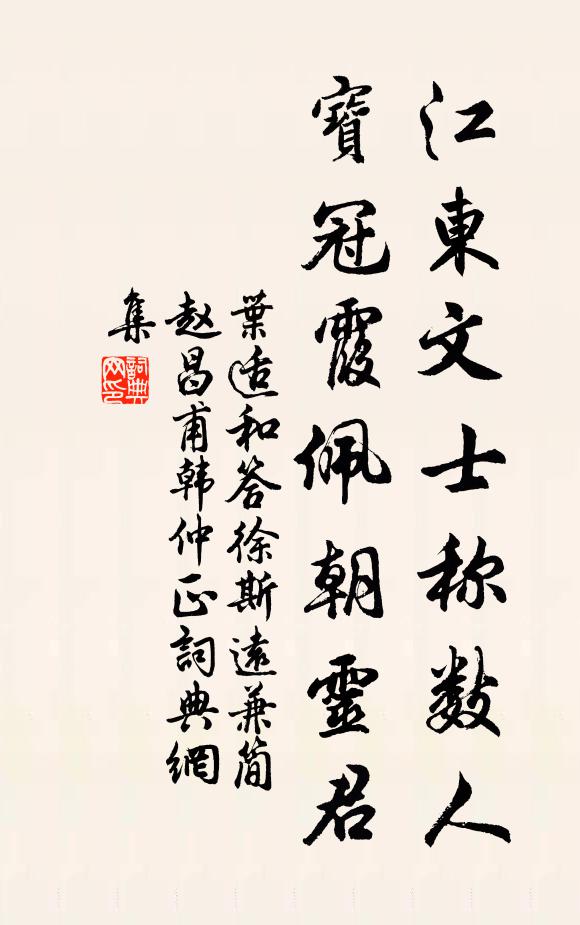 江東文士称数人
寶冠霞佩朝靈君
葉适和答徐斯遠兼简
赵昌甫韩仲正詞典網
集
詞典
网印